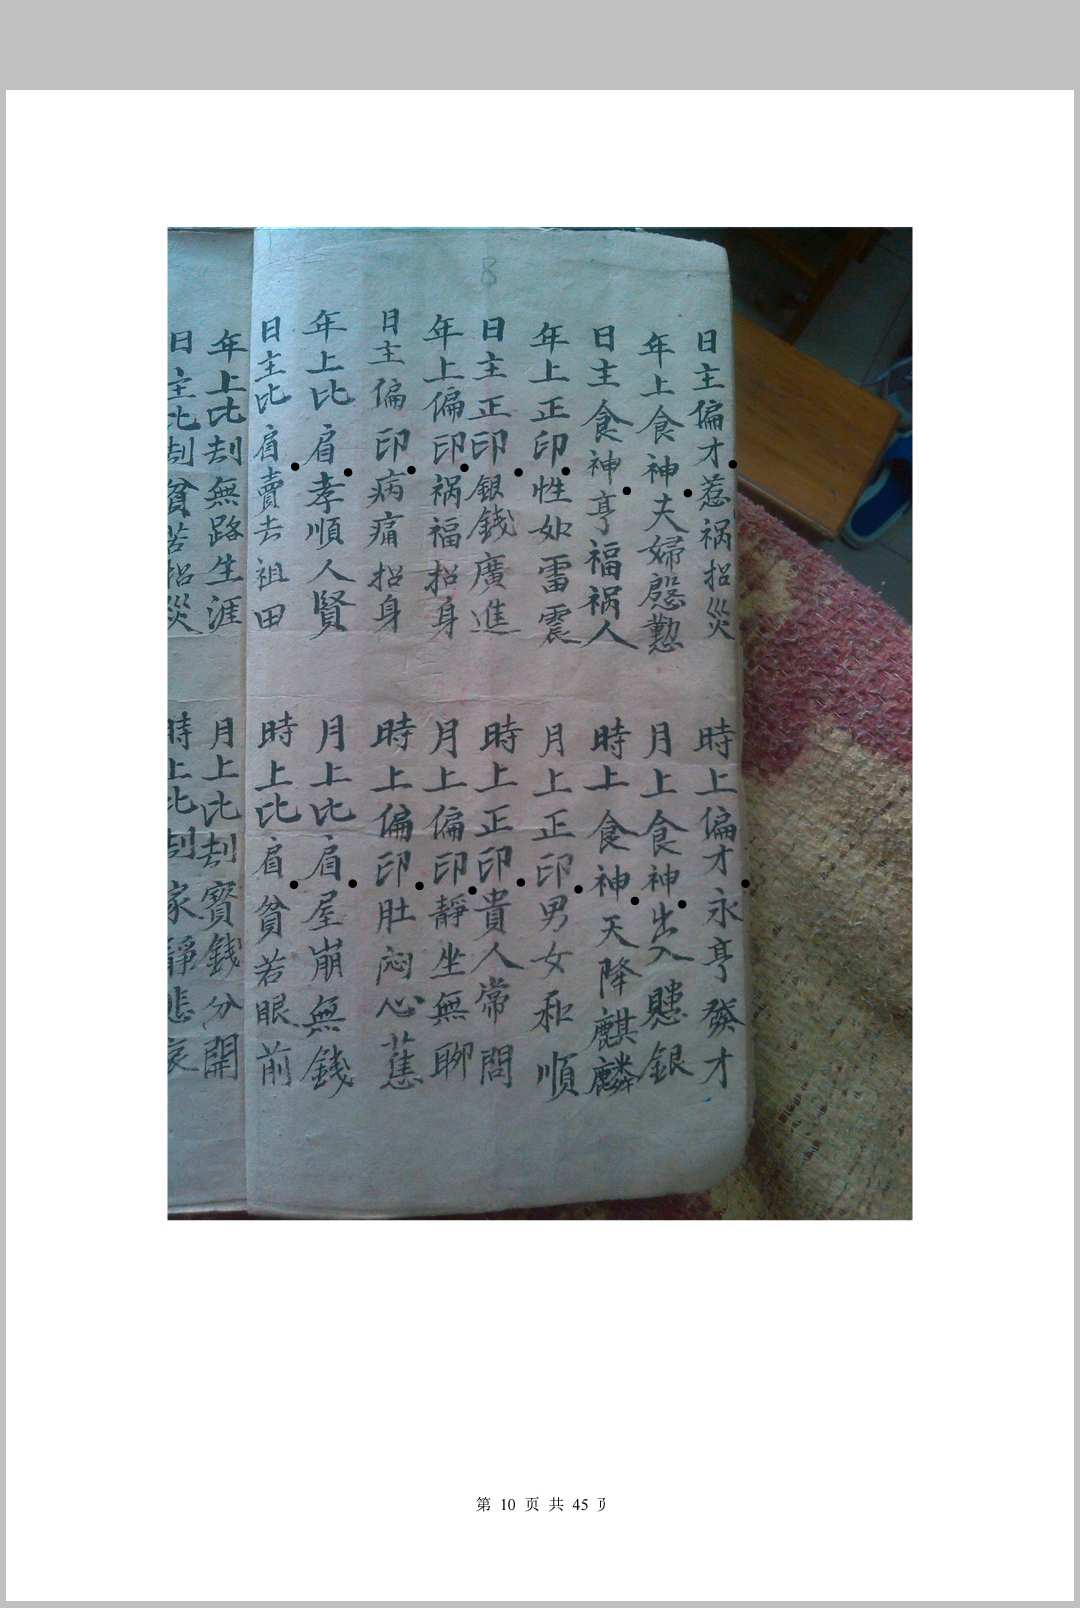 8
日主偏才惹祸招災
時上偏才永亨發才
年上食神夫婦慇懃
月上食神出入賹銀
日主食神亨福祸人
時上食神天降麒麟
年上正印性如雷震
月上正印男女和順
日主正印銀錢廣進
時上正印貴人常問
年上偏印祸福招身
月上偏印靜坐無聊
日主偏印病痛招身
時上偏印肚悶心蕉
年上比肩孝順人賢
月上比肩屋崩無錢
日主比肩賣去祖田
時上比肩貧若眼前
年上比刮無路生涯
月上比刮寳錢分開
日主比刮貧苦招災
時上比刮家靜悲哀
第 10 页 共 45 页